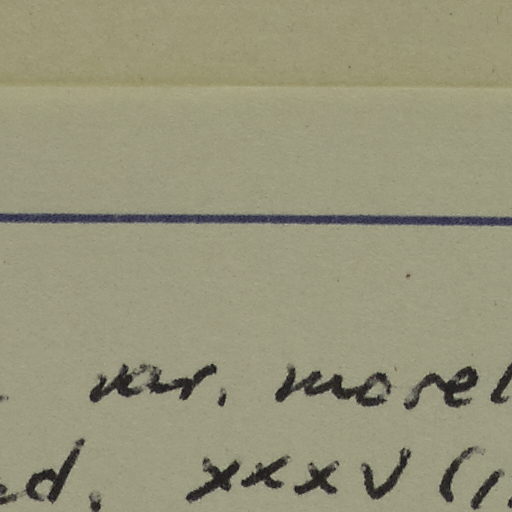 var. morel
d. xxxv (1